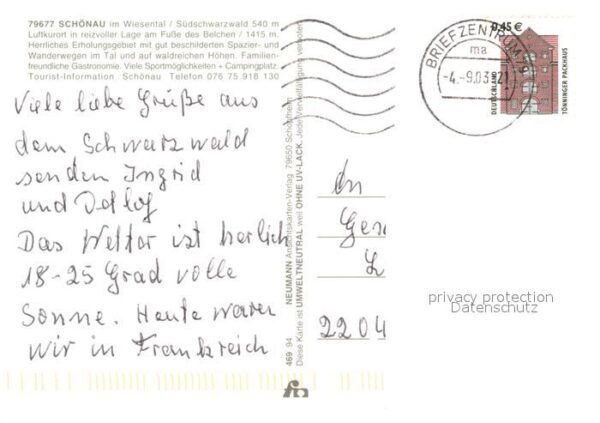 79677 SCHÖNAU im Wiesental / Südschwarzwald 540 m
Luftkurort in reizvoller Lage am Fuße des Belchen / 1415 m.
Herrliches Erholungsgebiet mit gut beschilderten Spazier- und
Wanderwegen im Tal und auf waldreichen Höhen. Familien-
freundliche Gastronomie. Viele Sportmöglichkeiten + Campingplatz.
Tourist-Information Schönau Telefon 076 75 918 130
Viele liebe Grüße aus
dem Schwarzwald
senden Ingrid
und Detlef
Das Wetter ist herlich
18-25 Grad volle
Sonne. Heute waren
wir in Frankreich
469 94 NEUMANN Ansichtskarten-Verlag 79650 Schopfheim
Diese Karte ist UMWELTNEUTRAL weil OHNE UV-LACK. Jede Vervielfältigung verboten
BRIEFZENTRUM
ma
-4.-9.03-21
0,45 €
DEUTSCHLAND
TÖNNINGER PACKHAUS
An
2204
privacy protection
Datenschutz